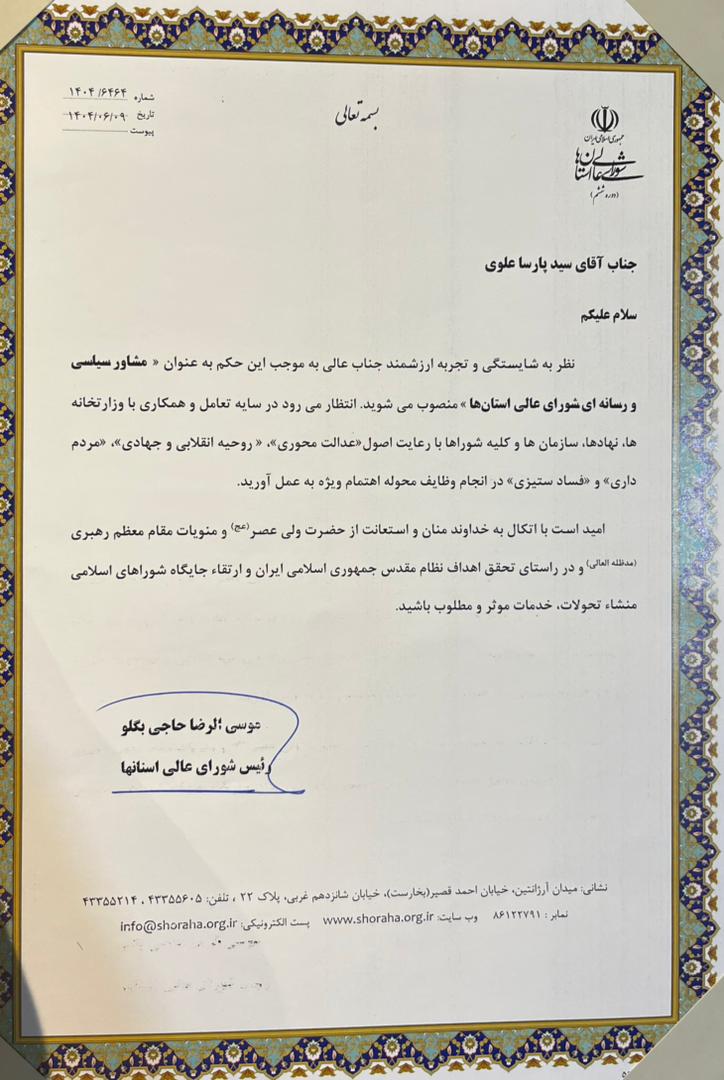 بسمه تعالی
شماره ۱۴۰۴/۶۴۶۴
تاریخ ۱۴۰۴/۰۶/۰۹
پیوست
جمهوری اسلامی ایران
شورای عالی استان‌ها
(دوره ششم)
جناب آقای سید پارسا علوی
سلام علیکم
نظر به شایستگی و تجربه ارزشمند جناب عالی به موجب این حکم به عنوان « مشاور سیاسی
و رسانه ای شورای عالی استان‌ها » منصوب می شوید. انتظار می رود در سایه تعامل و همکاری با وزارتخانه
ها، نهادها، سازمان ها و کلیه شوراها با رعایت اصول«عدالت محوری»، « روحیه انقلابی و جهادی»، «مردم
داری» و «فساد ستیزی» در انجام وظایف محوله اهتمام ویژه به عمل آورید.
امید است با اتکال به خداوند منان و استعانت از حضرت ولی عصر(عج) و منویات مقام معظم رهبری
(مدظله العالی) و در راستای تحقق اهداف نظام مقدس جمهوری اسلامی ایران و ارتقاء جایگاه شوراهای اسلامی
منشاء تحولات، خدمات موثر و مطلوب باشید.
موسی الرضا حاجی بگلو
رئیس شورای عالی استانها
نشانی: میدان آرژانتین، خیابان احمد قصیر(بخارست)، خیابان شانزدهم غربی، پلاک ۲۲ ، تلفن: ۴۳۳۵۵۶۰۵ ، ۴۳۳۵۵۲۱۴
نمابر : ۸۶۱۲۲۷۹۱ وب سایت: www.shoraha.org.ir پست الکترونیکی: info@shoraha.org.ir